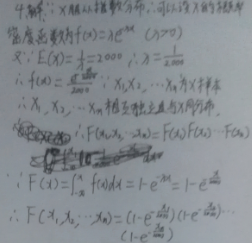 4.解: ∵X服从指数分布,∴可设X的概率
密度函数为f(x)=λe^{-λx} (λ>0)
又∵E(X)=1/λ=2000 ∴λ=1/2000
∴f(x)=e^{-x/2000}/2000 ∵X₁,X₂,…Xn为X样本
∴X₁,X₂,…Xn相互独立且与X同分布.
∴F(X₁,X₂,…Xn)=F(X₁)F(X₂)…F(Xn)
∵F(x)=∫f(x)dx=1-e^{-λx}=1-e^{-x/2000}
∴F(X₁,X₂,…Xn)=(1-e^{-x₁/2000})(1-e^{-x₂/2000})…
(1-e^{-xn/2000})